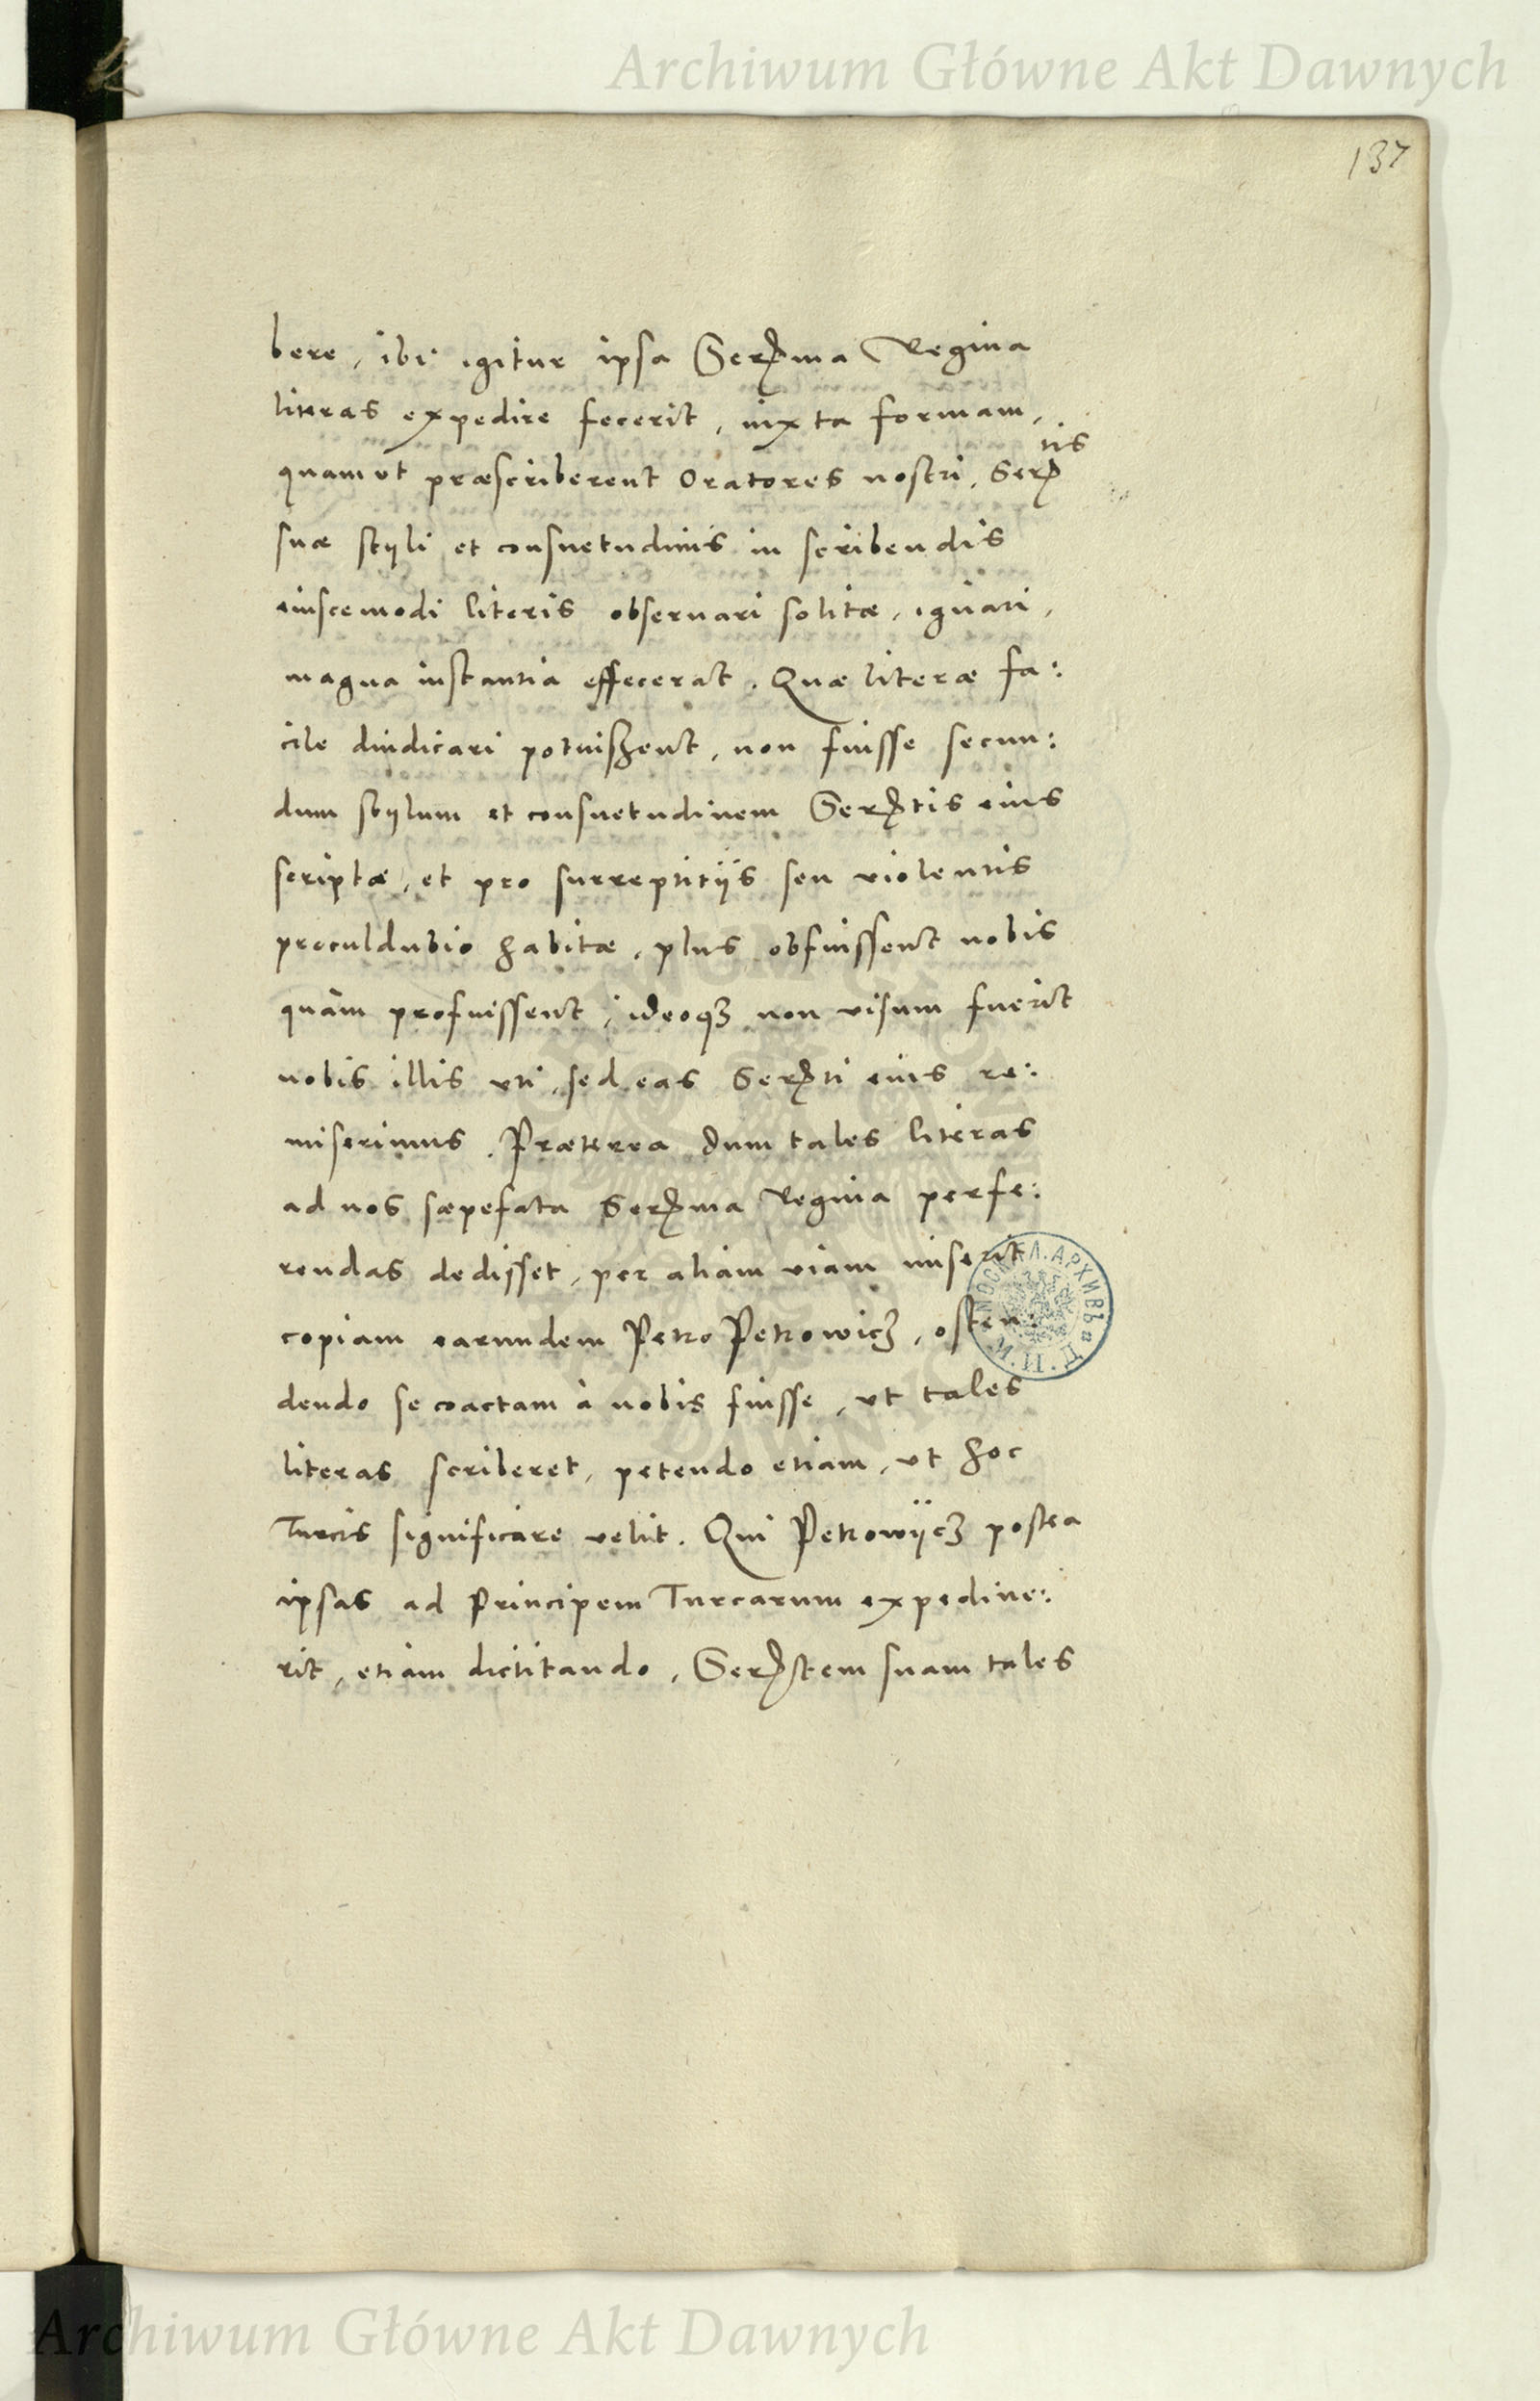 Archiwum Główne Akt Dawnych
137
bere, ibi igitur ipsa Serma Regina
literas expedire fecerit, iuxta formam,
quam ut præscriberent Oratores nostri, Sertis
suæ styli et consuetudinis in scribendis
eiuscemodi literis obseruari solitæ, ignari,
magna instantia effecerāt. Quæ literæ fa:
cile diudicari potuiszent, non fuisse secun:
dum stylum et consuetudinem Sertis eius
scriptæ, et pro surreptitijs seu violentis
proculdubio habitæ, plus obfuissent nobis
quàm profuissent, ideoqȝ non visum fuerit
nobis illis uti, sed eas Serti eius re:
miserimus. Præterea dum tales literas
ad nos sæpefata Serma Regina perfe:
rendas dedisset, per aliam viam miserit
copiam earundem Petro Petrowicȝ, osten:
dendo se coactam à nobis fuisse, ut tales
literas scriberet, petendo etiam, ut hoc
Turcis significare velit. Qui Petrowijcȝ postea
ipsas ad Principem Turcarum expediue:
rit, etiam dictitando, Sertem suam tales
Archiwum Główne Akt Dawnych